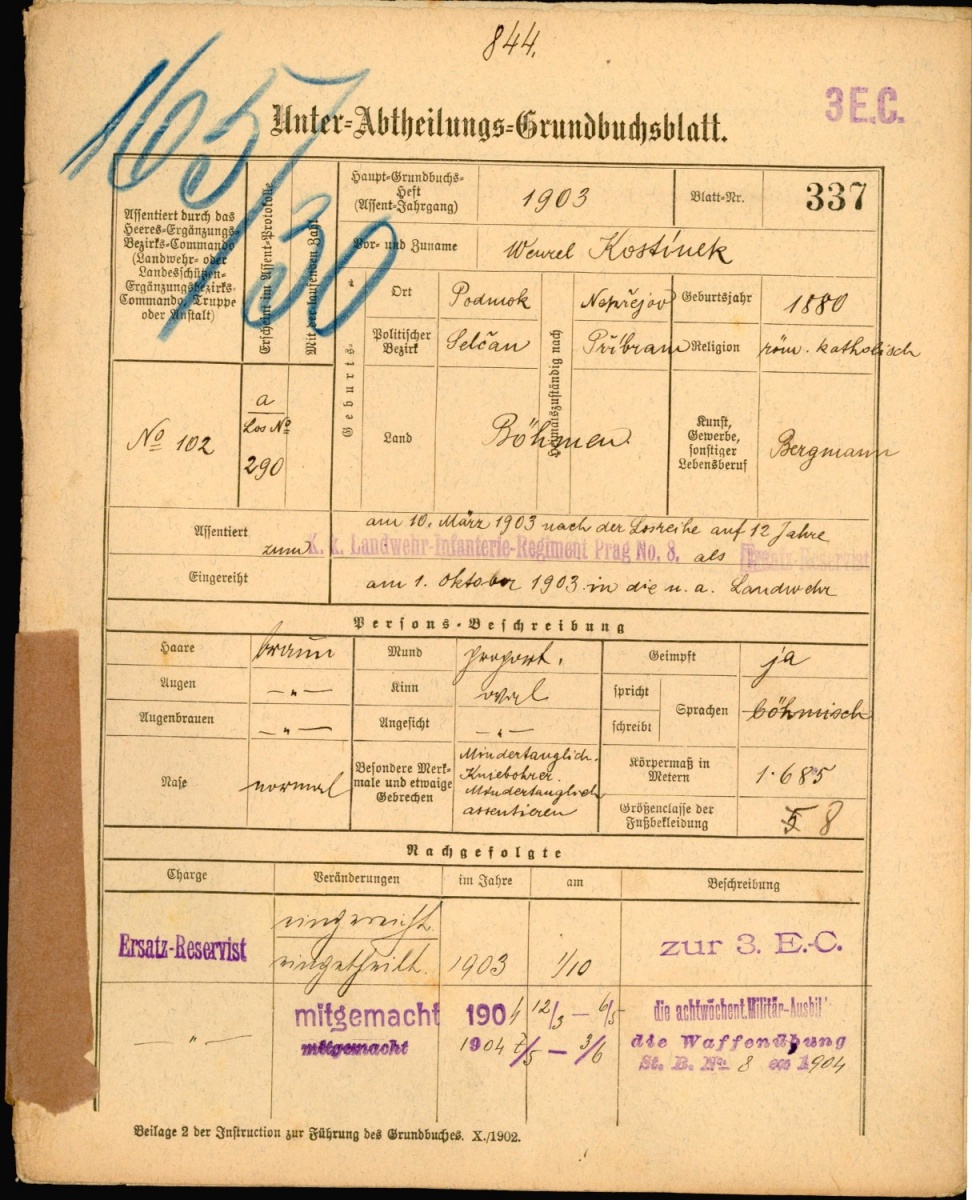 844.
1657/30
3 E.C.
Unter-Abtheilungs-Grundbuchsblatt.
Assentiert durch das
Heeres-Ergänzungs-
Bezirks-Commando
(Landwehr- oder
Landesschützen-
Ergänzungsbezirks-
Commando, Truppe
oder Anstalt)
Erscheint im Assent-Protokolle
Mit der laufenden Zahl
Haupt-Grundbuchs-
Heft
(Assent-Jahrgang)
1903
Blatt-Nr.
337
Vor- und Zuname
Wenzel Kostínek
Geburts-
Ort
Podmok
Heimatszuständig nach
Nepřejov
Geburtsjahr
1880
Politischer
Bezirk
Selčan
Příbram
Religion
röm. katholisch
No 102
a
Los No
290
Land
Böhmen
Kunst,
Gewerbe,
sonstiger
Lebensberuf
Bergmann
Assentiert
am 10. März 1903 nach der Losreihe auf 12 Jahre
zum K. k. Landwehr-Infanterie-Regiment Prag No. 8. als Ersatz-Reservist
Eingereiht
am 1. Oktober 1903 in die n. a. Landwehr
Persons-Beschreibung
Haare braun
Mund proport.
Geimpft ja
Augen -〃-
Kinn oval
spricht
schreibt
Sprachen böhmisch
Augenbrauen -〃-
Angesicht -〃-
Nase normal
Besondere Merk-
male und etwaige
Gebrechen
Mindertauglich.
Kniebohrer.
Mindertauglich
assentieren
Körpermaß in
Metern
1·685
Größenclasse der
Fußbekleidung
5 8
Nachgefolgte
Charge Veränderungen im Jahre am Beschreibung
eingereiht.
Ersatz-Reservist eingetheilt. 1903 1/10 zur 3. E.-C.
-〃- mitgemacht 1904 12/3 - 6/5 die achtwöchent. Militär-Ausbil'
mitgemacht 1904 7/5 - 3/6 die Waffenübung
St. B. No. 8 ex 1904
Beilage 2 der Instruction zur Führung des Grundbuches. X./1902.